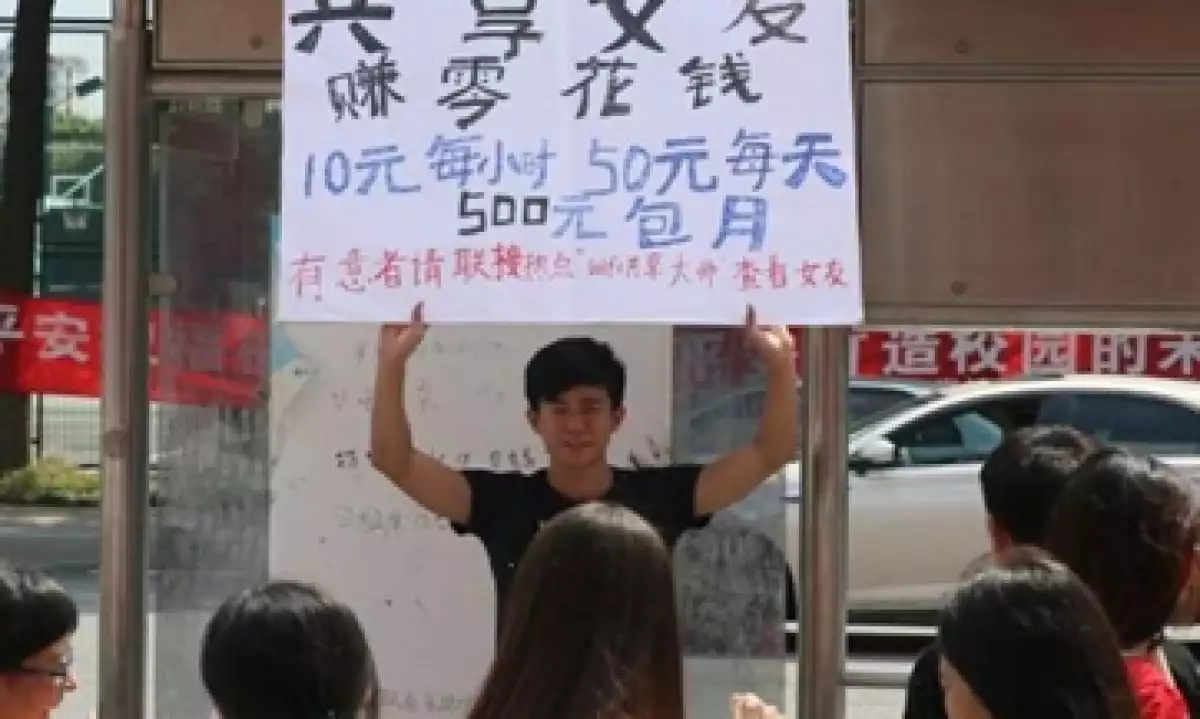 共享女友
赚零花钱
10元每小时 50元每天
500元包月
有意者请联接热点"wifi共享大师 查看女友
平安
造校园的